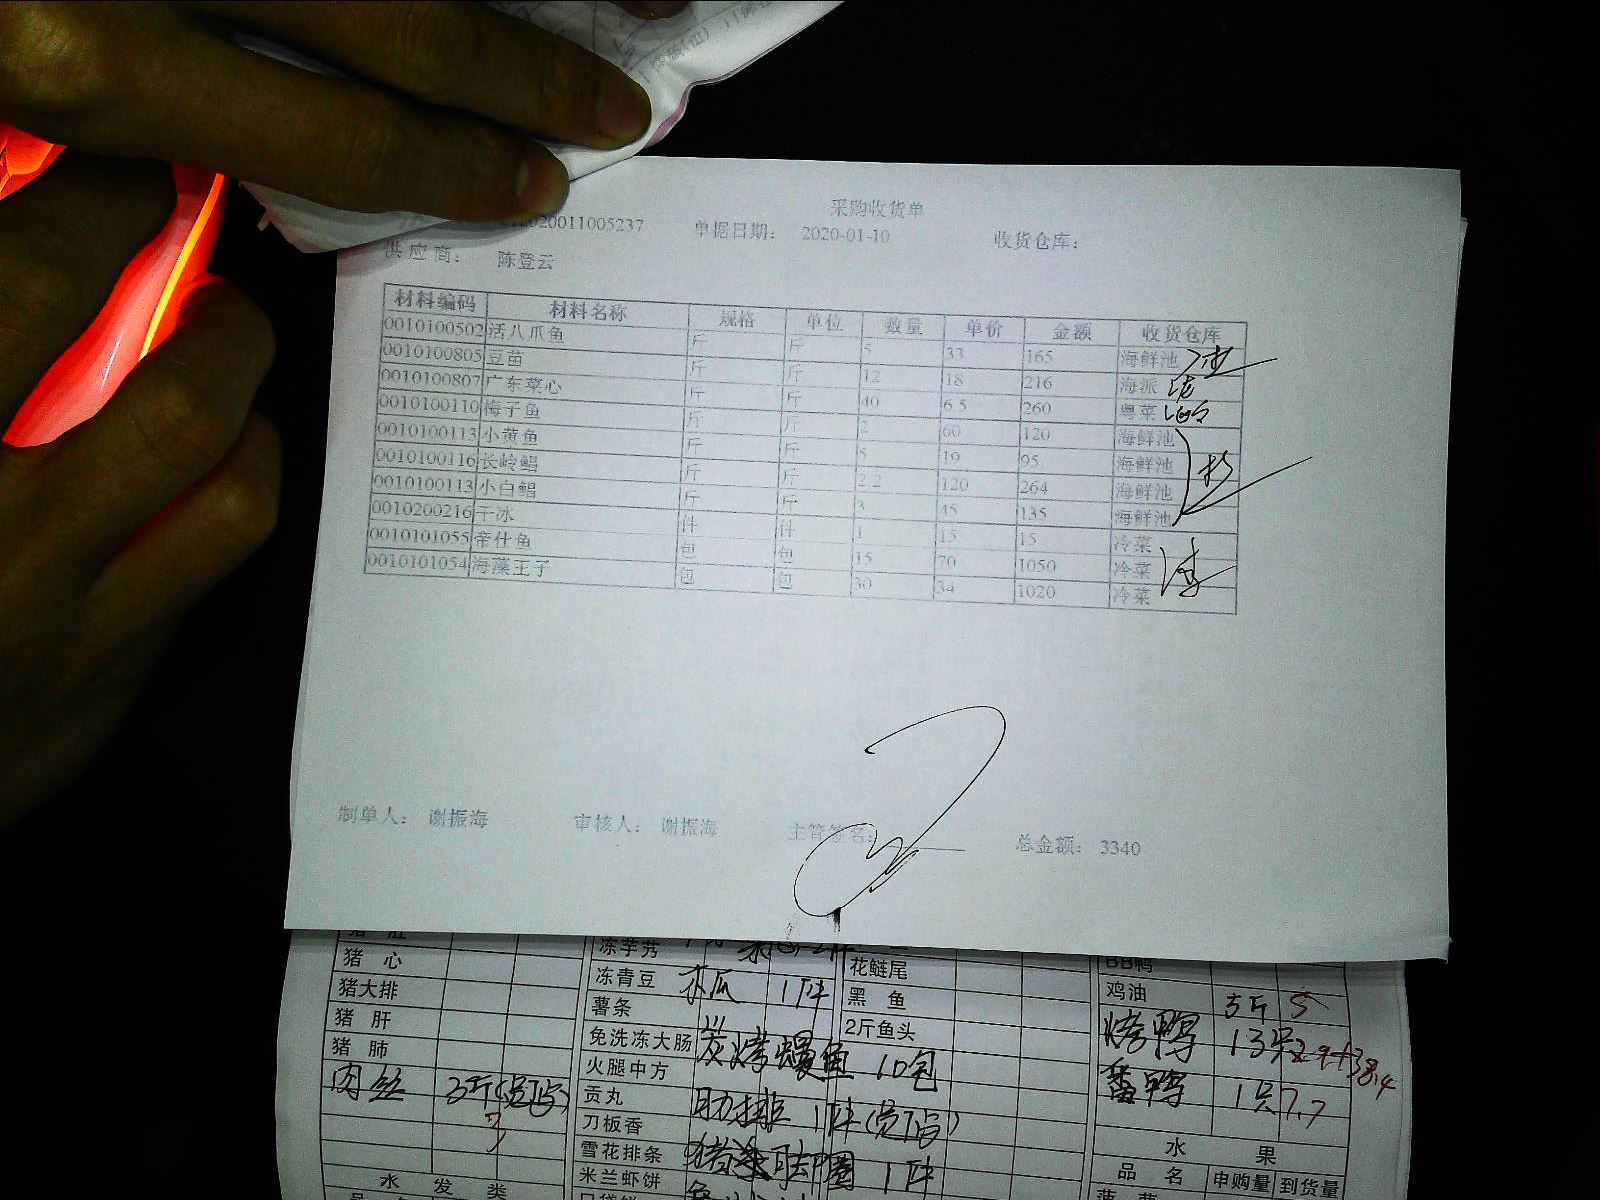 采购收货单
2020011005237 单据日期： 2020-01-10 收货仓库：
供应商： 陈登云
材料编码 材料名称 规格 单位 数量 单价 金额 收货仓库
0010100502 活八爪鱼 斤 斤 5 33 165 海鲜池
0010100805 豆苗 斤 斤 12 18 216 海派
0010100807 广东菜心 斤 斤 40 6.5 260 粤菜
0010100110 梅子鱼 斤 斤 2 60 120 海鲜池
0010100113 小黄鱼 斤 斤 5 19 95 海鲜池
0010100116 长岭鲳 斤 斤 2.2 120 264 海鲜池
0010100113 小白鲳 斤 斤 3 45 135 海鲜池
0010200216 干冰 件 件 1 15 15 冷菜
0010101055 帝仕鱼 包 包 15 70 1050 冷菜
0010101054 海藻王子 包 包 30 34 1020 冷菜
制单人： 谢振海 审核人： 谢振海 主管签名： 总金额： 3340
冻芋艿 花鲢尾 BB鸭
猪心 冻青豆 木瓜 1件 黑鱼 鸡油 5斤 5
猪大排 薯条 2斤鱼头 烤鸭 13只
猪肝 免洗冻大肠 炭烤鳗鱼 10包
猪肺 火腿中方 番鸭 1只 7.7
肉丝 3斤 贡丸 肋排 1件
3 刀板香 水果
雪花排条 1件 品名 申购量 到货量
水发类 米兰虾饼 菠萝